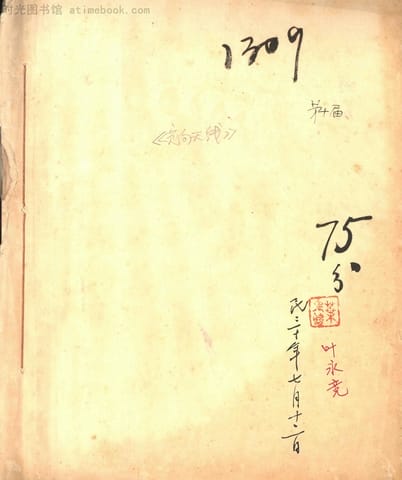 时光图书馆 atimebook.com
1309
第4届
《定向天线》
75
分
叶永竞
民三十年七月十二日